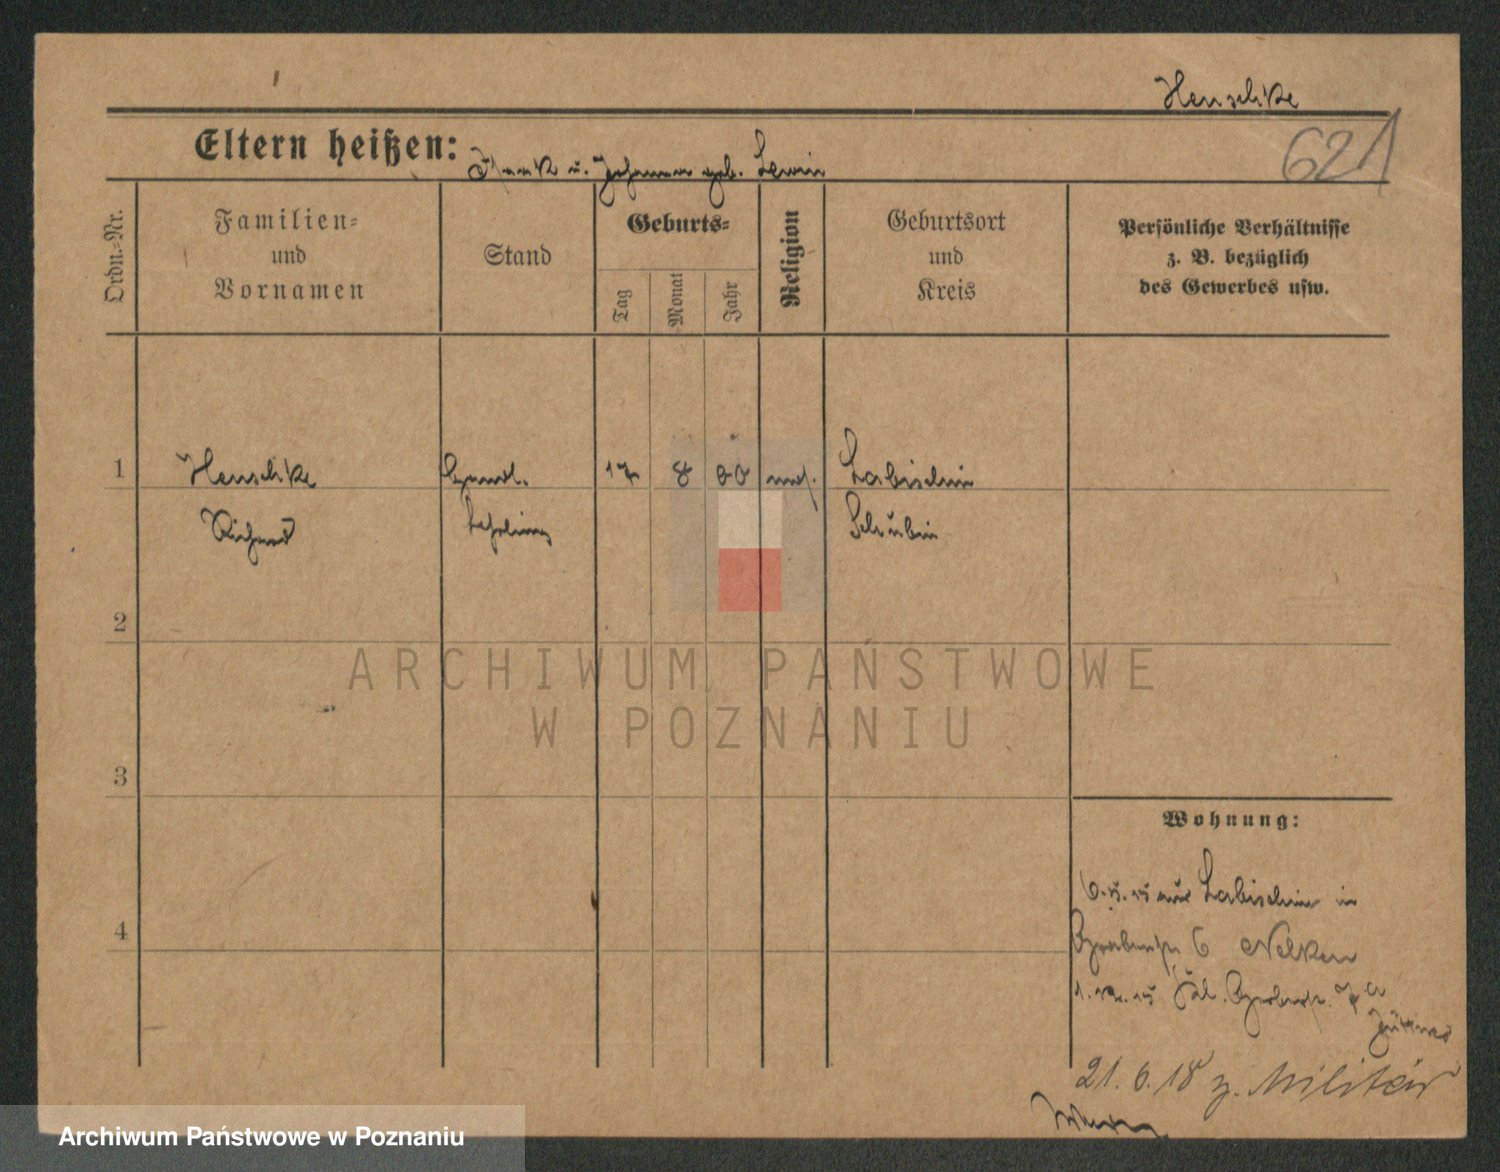 Henschke
621
Eltern heißen: u. Johanna geb. Lewin
Ordn.-Nr.
Familien-
und
Vornamen
Stand
Geburts-
Tag
Monat
Jahr
Religion
Geburtsort
und
Kreis
Persönliche Verhältnisse
z. B. bezüglich
des Gewerbes usw.
1 Henschke 17 8 00 mos. Labischin
Richard Lehrling Schubin
2
3
4
ARCHIWUM PAŃSTWOWE
W POZNANIU
Wohnung:
6. 5. 15 aus Labischin in
6 Nelken
1. 15
21. 6. 18 z. Militär
Archiwum Państwowe w Poznaniu